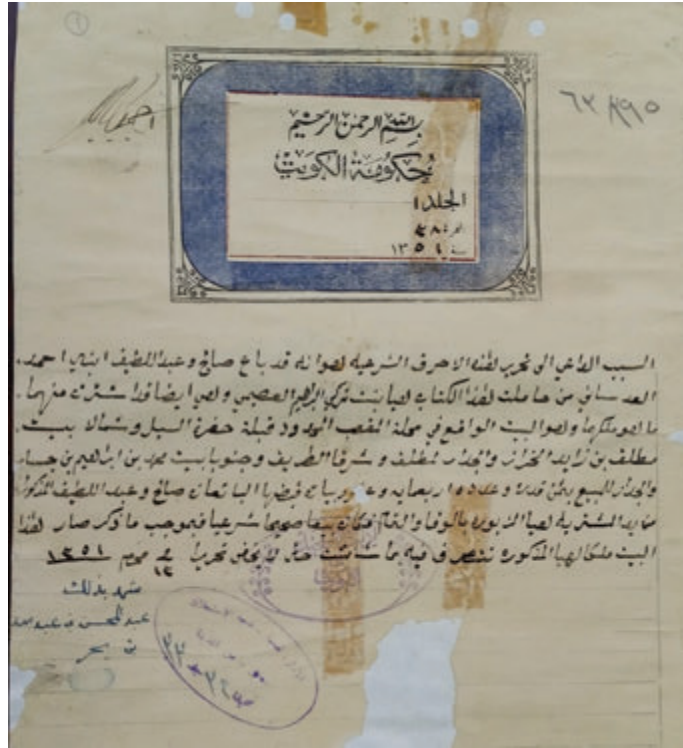 ١
٦٢٨٩٥
بسم الله الرحمن الرحيم
حكومة الكويت
المجلد ١
سنة ١٣٥١
السبب الداعي الى تحرير هذه الاحرف الشرعيه هو انه قد باع صالح وعبداللطيف ابني احمد
العدساني من حاملت هذا الكتاب هيا بنت تركي ابراهيم العصيمي وهي ايضا قد اشترت منهما
ما هو ملكهما وهو البيت الواقع في محلة المحدود قبلة حفرة السيل وشمالا بيت
مطلق بن زايد الخراز والجدار وشرقا الطريف وجنوبا بيت محمد بن ابراهيم بن
والجدار للبيع بثمن قدره وعدده اربعمايه روبيات قبضها البايعان صالح وعبد اللطيف المذكوران
من يد المشتريه هيا المزبوره بالوفا والتمام فكان بيعا صحيحا شرعيا فبموجب ما ذكر صار هذا
البيت ملكا لهيا المذكوره تتصرف فيه ما شائت حتى لا يخفى تحريرا محرم ١٣٥١
شهد بذلك
عبدالمحسن بن
بن بحر